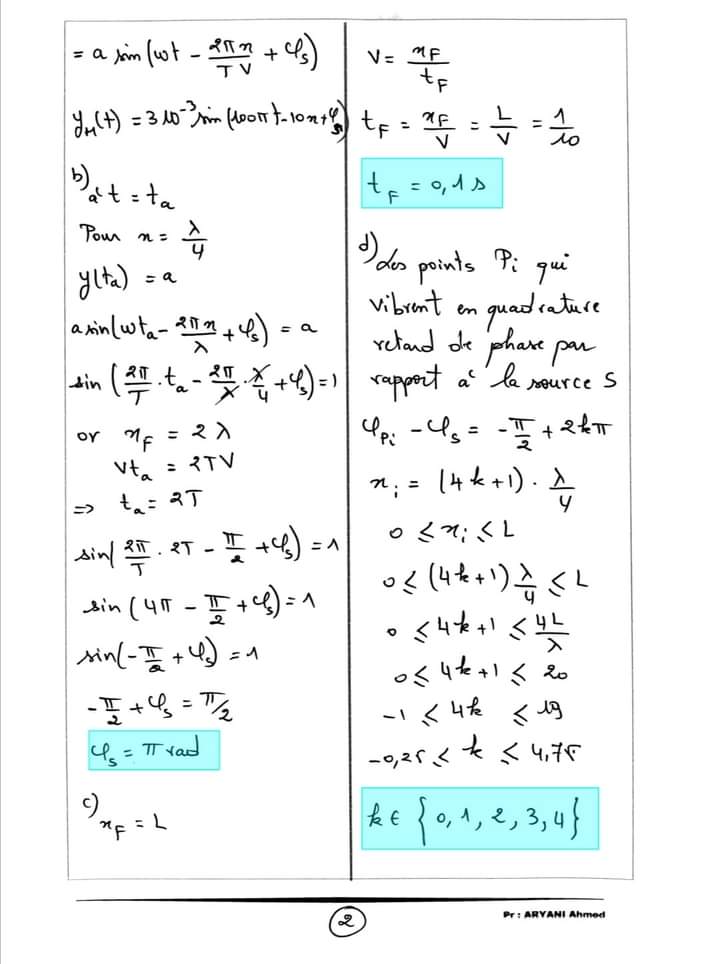 = a sin(ωt - 2πx/TV + φs)
yM(t) = 3.10⁻³ sin(100πt - 10x + φs)
b) à t = ta
Pour x = λ/4
y(ta) = a
a sin(ωta - 2πx/λ + φs) = a
sin(2π/T . ta - 2π/λ . λ/4 + φs) = 1
or xF = 2λ
Vta = 2TV
=> ta = 2T
sin(2π/T . 2T - π/2 + φs) = 1
sin(4π - π/2 + φs) = 1
sin(-π/2 + φs) = 1
-π/2 + φs = π/2
φs = π rad
c) xF = L
V = xF/tF
tF = xF/V = L/V = 1/10
tF = 0,1 s
d) Les points Pi qui
vibrent en quadrature
retard de phase par
rapport à la source S
φPi - φs = -π/2 + 2kπ
xi = (4k+1) . λ/4
0 ≤ xi ≤ L
0 ≤ (4k+1) λ/4 ≤ L
0 ≤ 4k+1 ≤ 4L/λ
0 ≤ 4k+1 ≤ 20
-1 ≤ 4k ≤ 19
-0,25 ≤ k ≤ 4,75
k ∈ {0, 1, 2, 3, 4}
2
Pr : ARYANI Ahmed